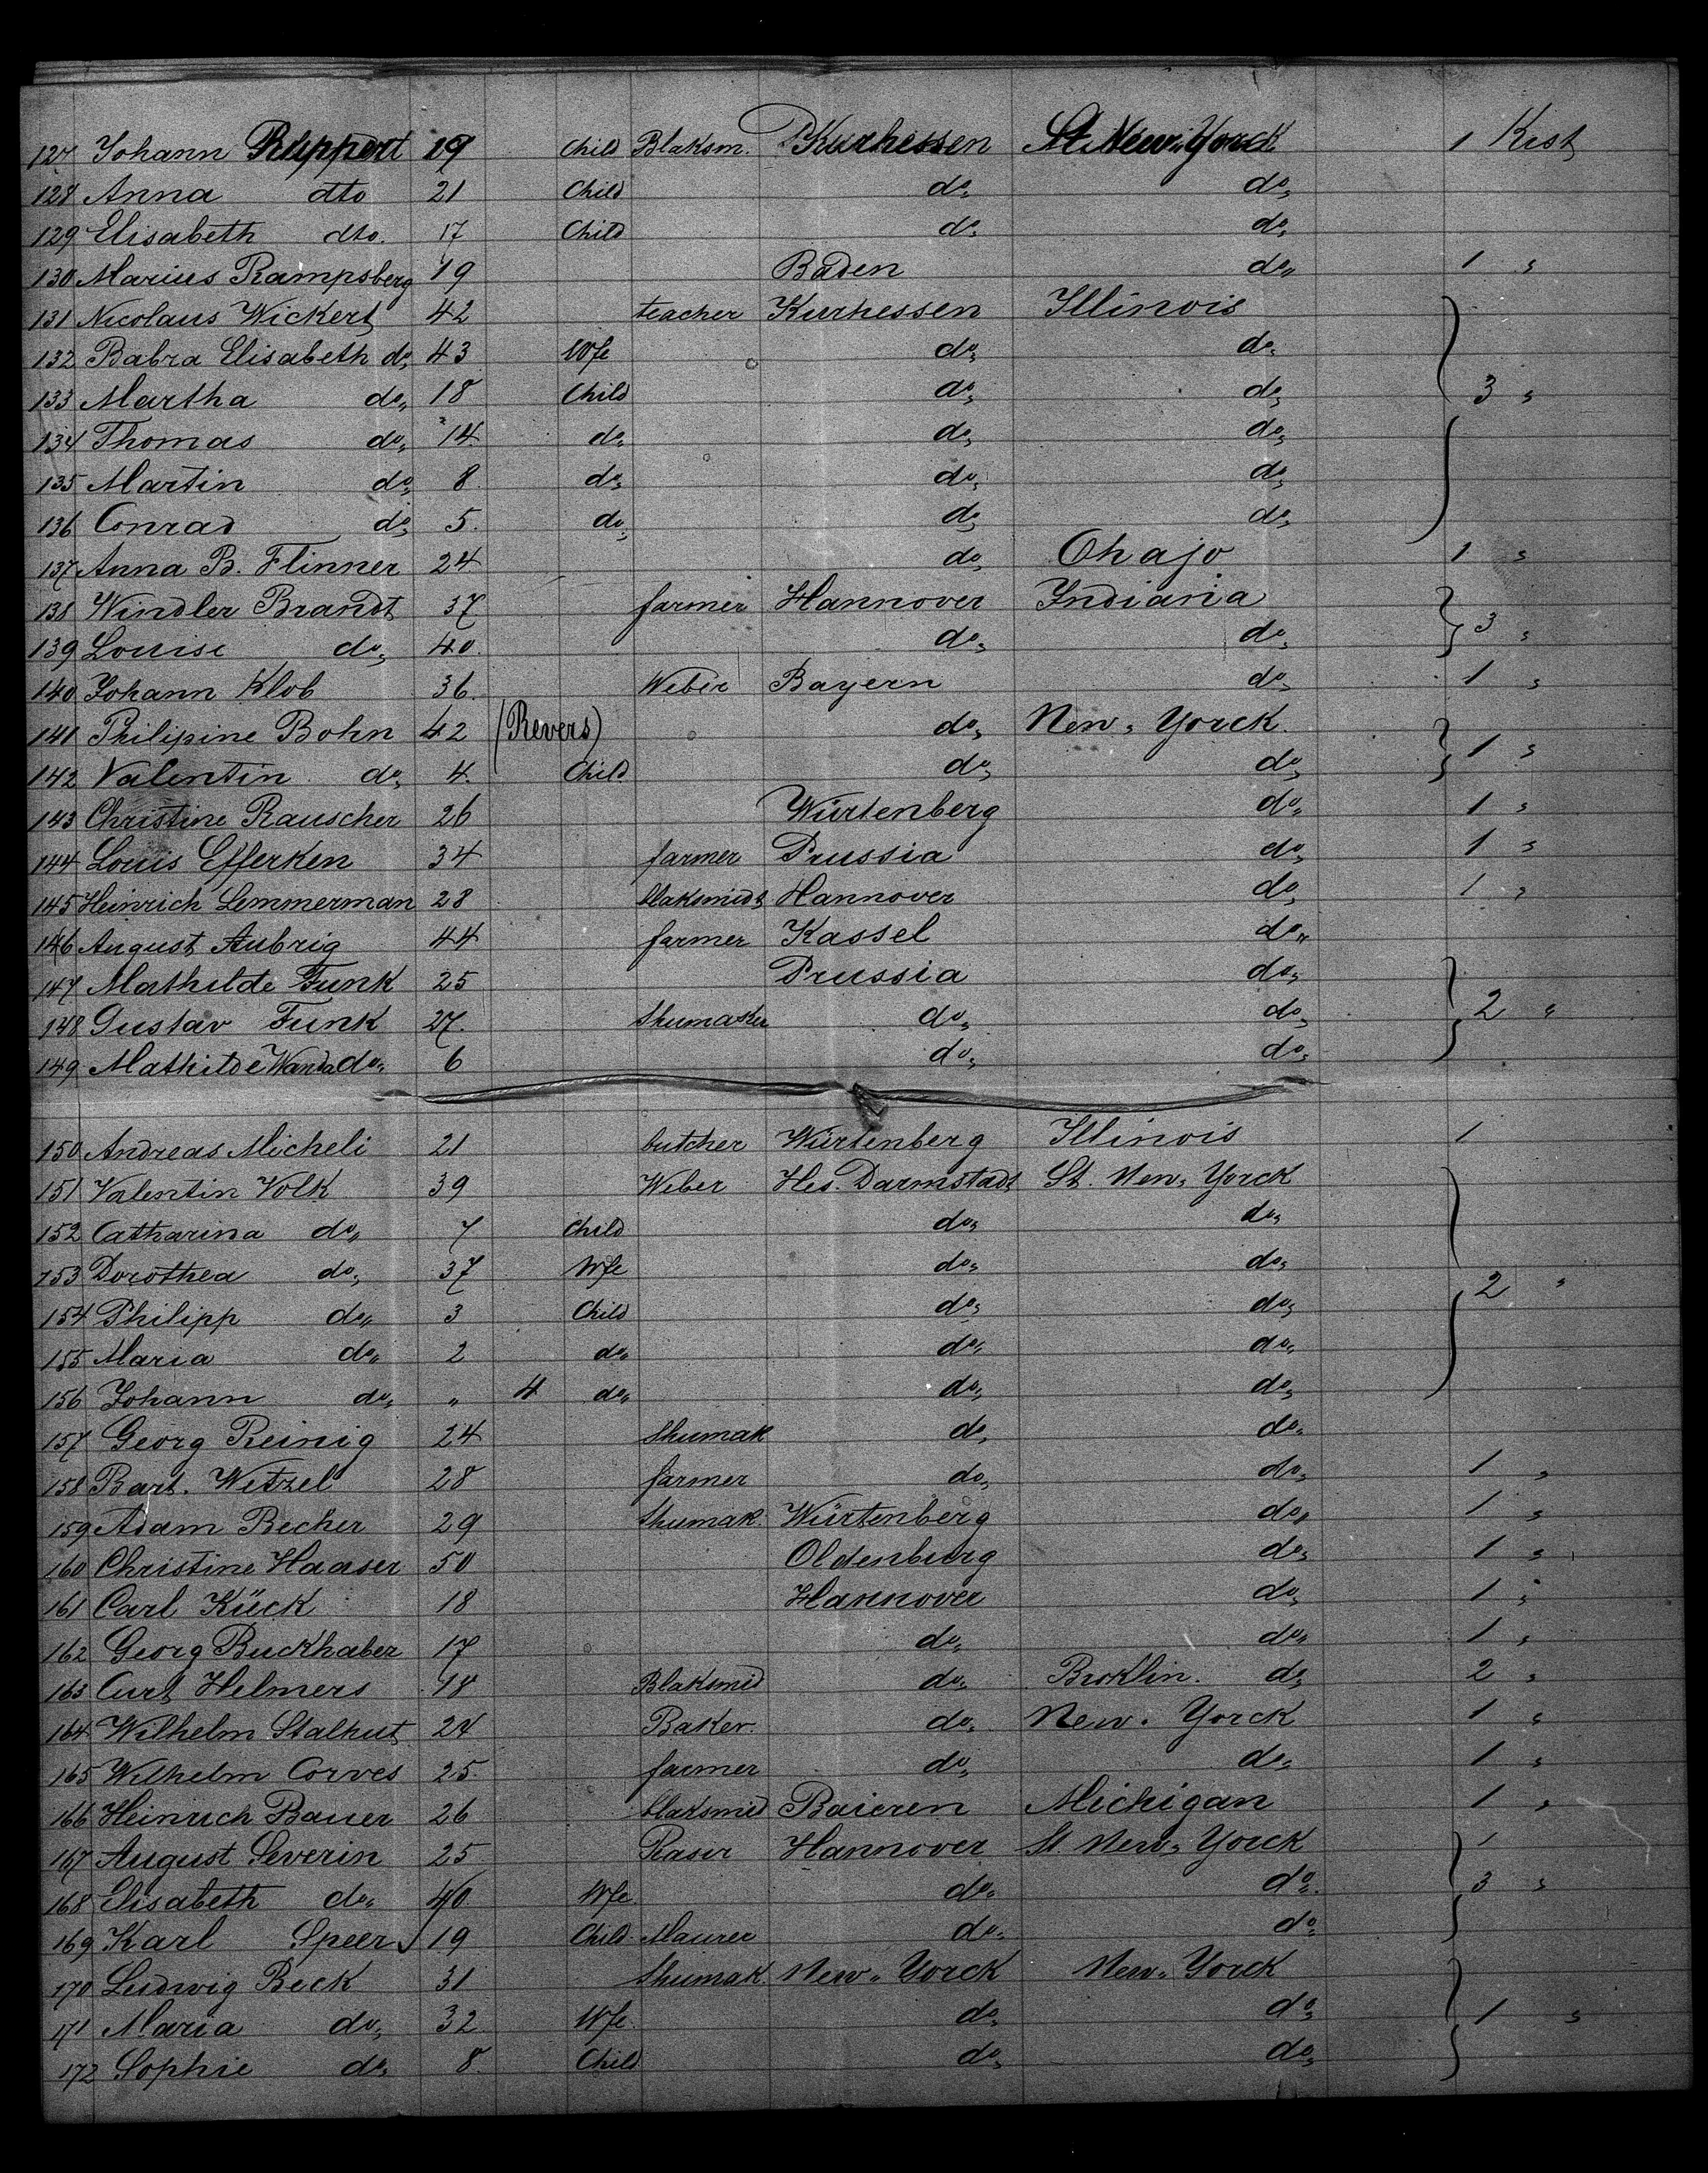 127 Johann Ruppert 19 Child Blaksm. Kurhessen St. New-Yorck 1 Kist
128 Anna dto 21 Child do, do,
129 Elisabeth dto. 17 Child do, do,
130 Marius Rampsberg 19 Baden do,, 1 "
131 Nicolaus Wickert 42 teacher Kurhessen Illinois
132 Babra Elisabeth do, 43 Wfe do, do,
133 Martha do,, 18 Child do, do, 3 "
134 Thomas do,, 14 do, do, do,
135 Martin do, 8. do, do, do,
136 Conrad do, 5. do, do, do,
137 Anna B. Flinner 24 do, Ohajo 1 "
138 Windler Brandt 37 farmer Hannover Indiana
139 Louise do, 40. do, do, 3 "
140 Johann Klob 36. Weber Bayern do, 1 "
141 Philipine Bohn 42 (Revers) do, New, Yorck.
142 Valentin do, 4. Child do, do, 1 "
143 Christine Rauscher 26 Würtenberg do,, 1 "
144 Louis Efferken 34 farmer Prussia do, 1 "
145 Heinrich Lemmerman 28 blaksmidt Hannover do, 1 "
146 August Aubrig 44 farmer Kassel do,,
147 Mathilde Funk 25 Prussia do,
148 Gustav Funk 27. Shumaker do, do, 2 "
149 Mathilde Wanda do,, 6 do, do,
150 Andreas Micheli 21 butcher Würtenberg Illinois 1
151 Valentin Volk 39 Weber Hes. Darmstadt St. New, Yorck
152 Catharina do,, 7 Child do, do,
153 Dorothea do, 37 Wfe do, do, 2 "
154 Philipp do,, 3 Child do, do,
155 Maria do,, 2 do,, do, do,
156 Johann do, " 4 do,, do, do,
157 Georg Reinig 24 Shumak do, do,
158 Bart. Wetzel 28 farmer do, do, 1 "
159 Adam Becher 29 Shumak. Würtenberg do, 1 "
160 Christine Haaser 50 Oldenburg do, 1 "
161 Carl Kück 18 Hannover do, 1 "
162 Georg Buckhaber 17 do, do, 1 "
163 Curt Helmers 18 Blaksmid do, Broklin. do, 2 "
164 Wilhelm Stalhut 24 Baker. do, New. Yorck 1 "
165 Wilhelm Corves 25. farmer do, do, 1 "
166 Heinrich Bauer 26 blaksmid Baieren Michigan 1 "
167 August Severin 25 Hannover St. New, Yorck 1
168 Elisabeth do,, 40. Wfe do,, do,, 3 "
169 Karl Speer 19 Child Maurer do,, do,
170 Ludwig Beck 31 Shumak. New,, Yorck New,, Yorck
171 Maria do, 32 Wfe. do, do, 1 "
172 Sophie do, 8. Child do, do,